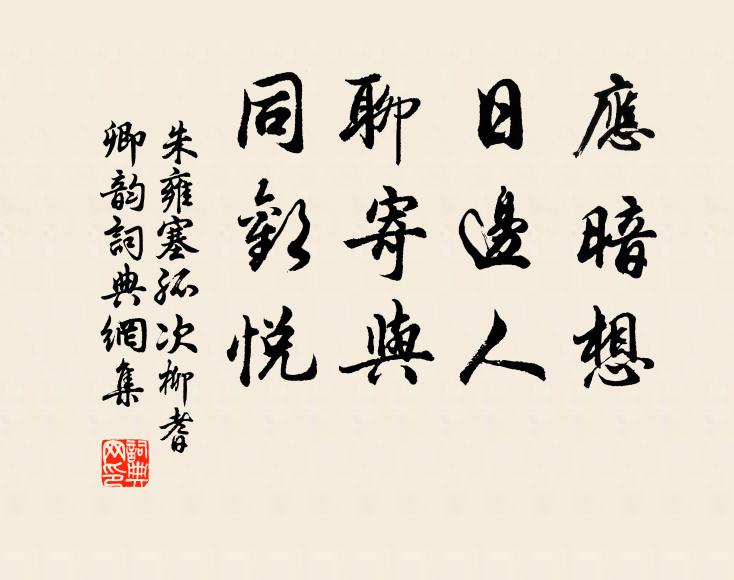 應暗想
日邊人
聊寄與
同歡悅
朱雍塞孤次柳耆
卿韵詞典網集
詞典
网印